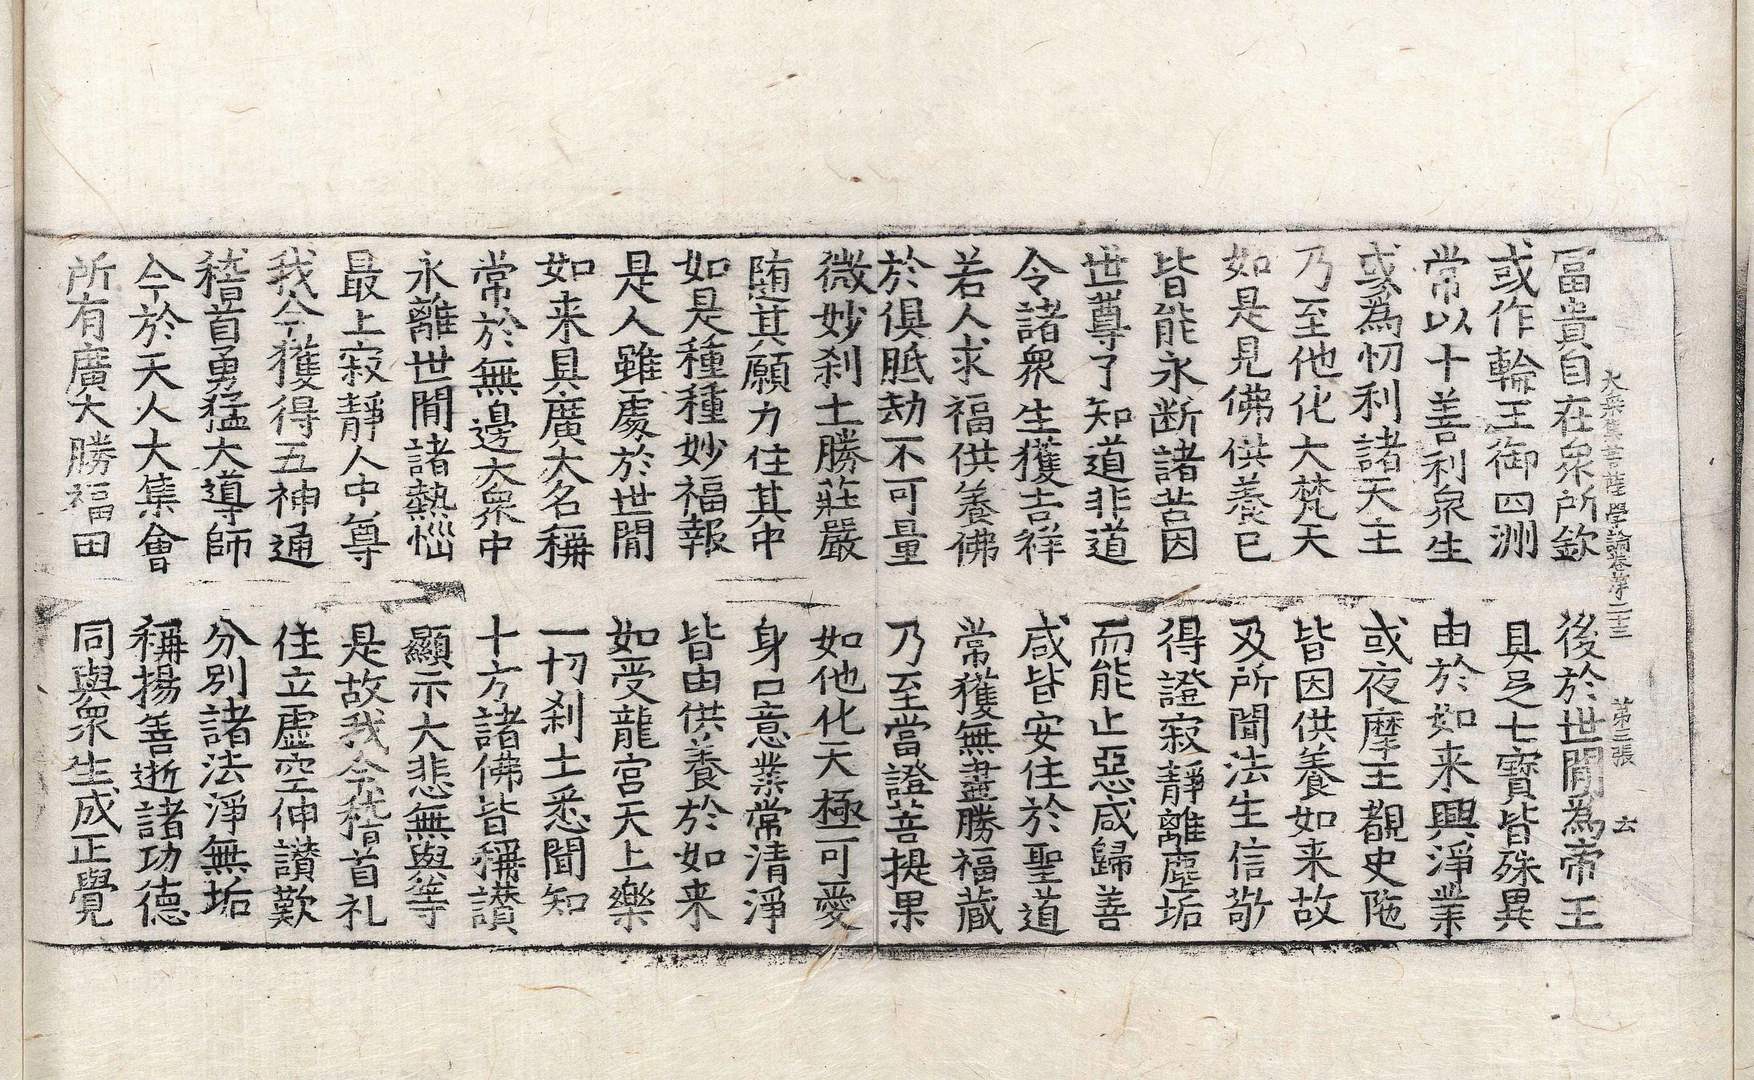 大乘集菩薩學論卷第二十三 第三張 云
冨貴自在眾所欽 後於世間為帝王
或作輪王御四洲 具足七寶皆殊異
常以十善利眾生 由於如来興淨業
或為忉利諸天主 或夜摩王覩史陁
乃至他化大梵天 皆因供養如来故
如是見佛供養已 及所聞法生信敬
皆能永断諸苦因 得證寂靜離塵垢
世尊了知道非道 而能止惡咸歸善
令諸眾生獲吉祥 咸皆安住於聖道
若人求福供養佛 常獲無盡勝福蔵
於俱胝劫不可量 乃至當證菩提果
微妙刹土勝莊嚴 如他化天極可愛
随其願力住其中 身口意業常清淨
如是種種妙福報 皆由供養於如来
是人雖處於世間 如受龍宮天上樂
如来具廣大名稱 一切刹土悉聞知
常於無邊大眾中 十方諸佛皆稱讃
永離世間諸熱惱 顯示大悲無與等
最上寂靜人中尊 是故我今稽首礼
我今獲得五神通 住立虛空伸讃歎
稽首勇猛大導師 分別諸法淨無垢
今於天人大集會 稱揚善逝諸功德
所有廣大勝福田 同與眾生成正覺